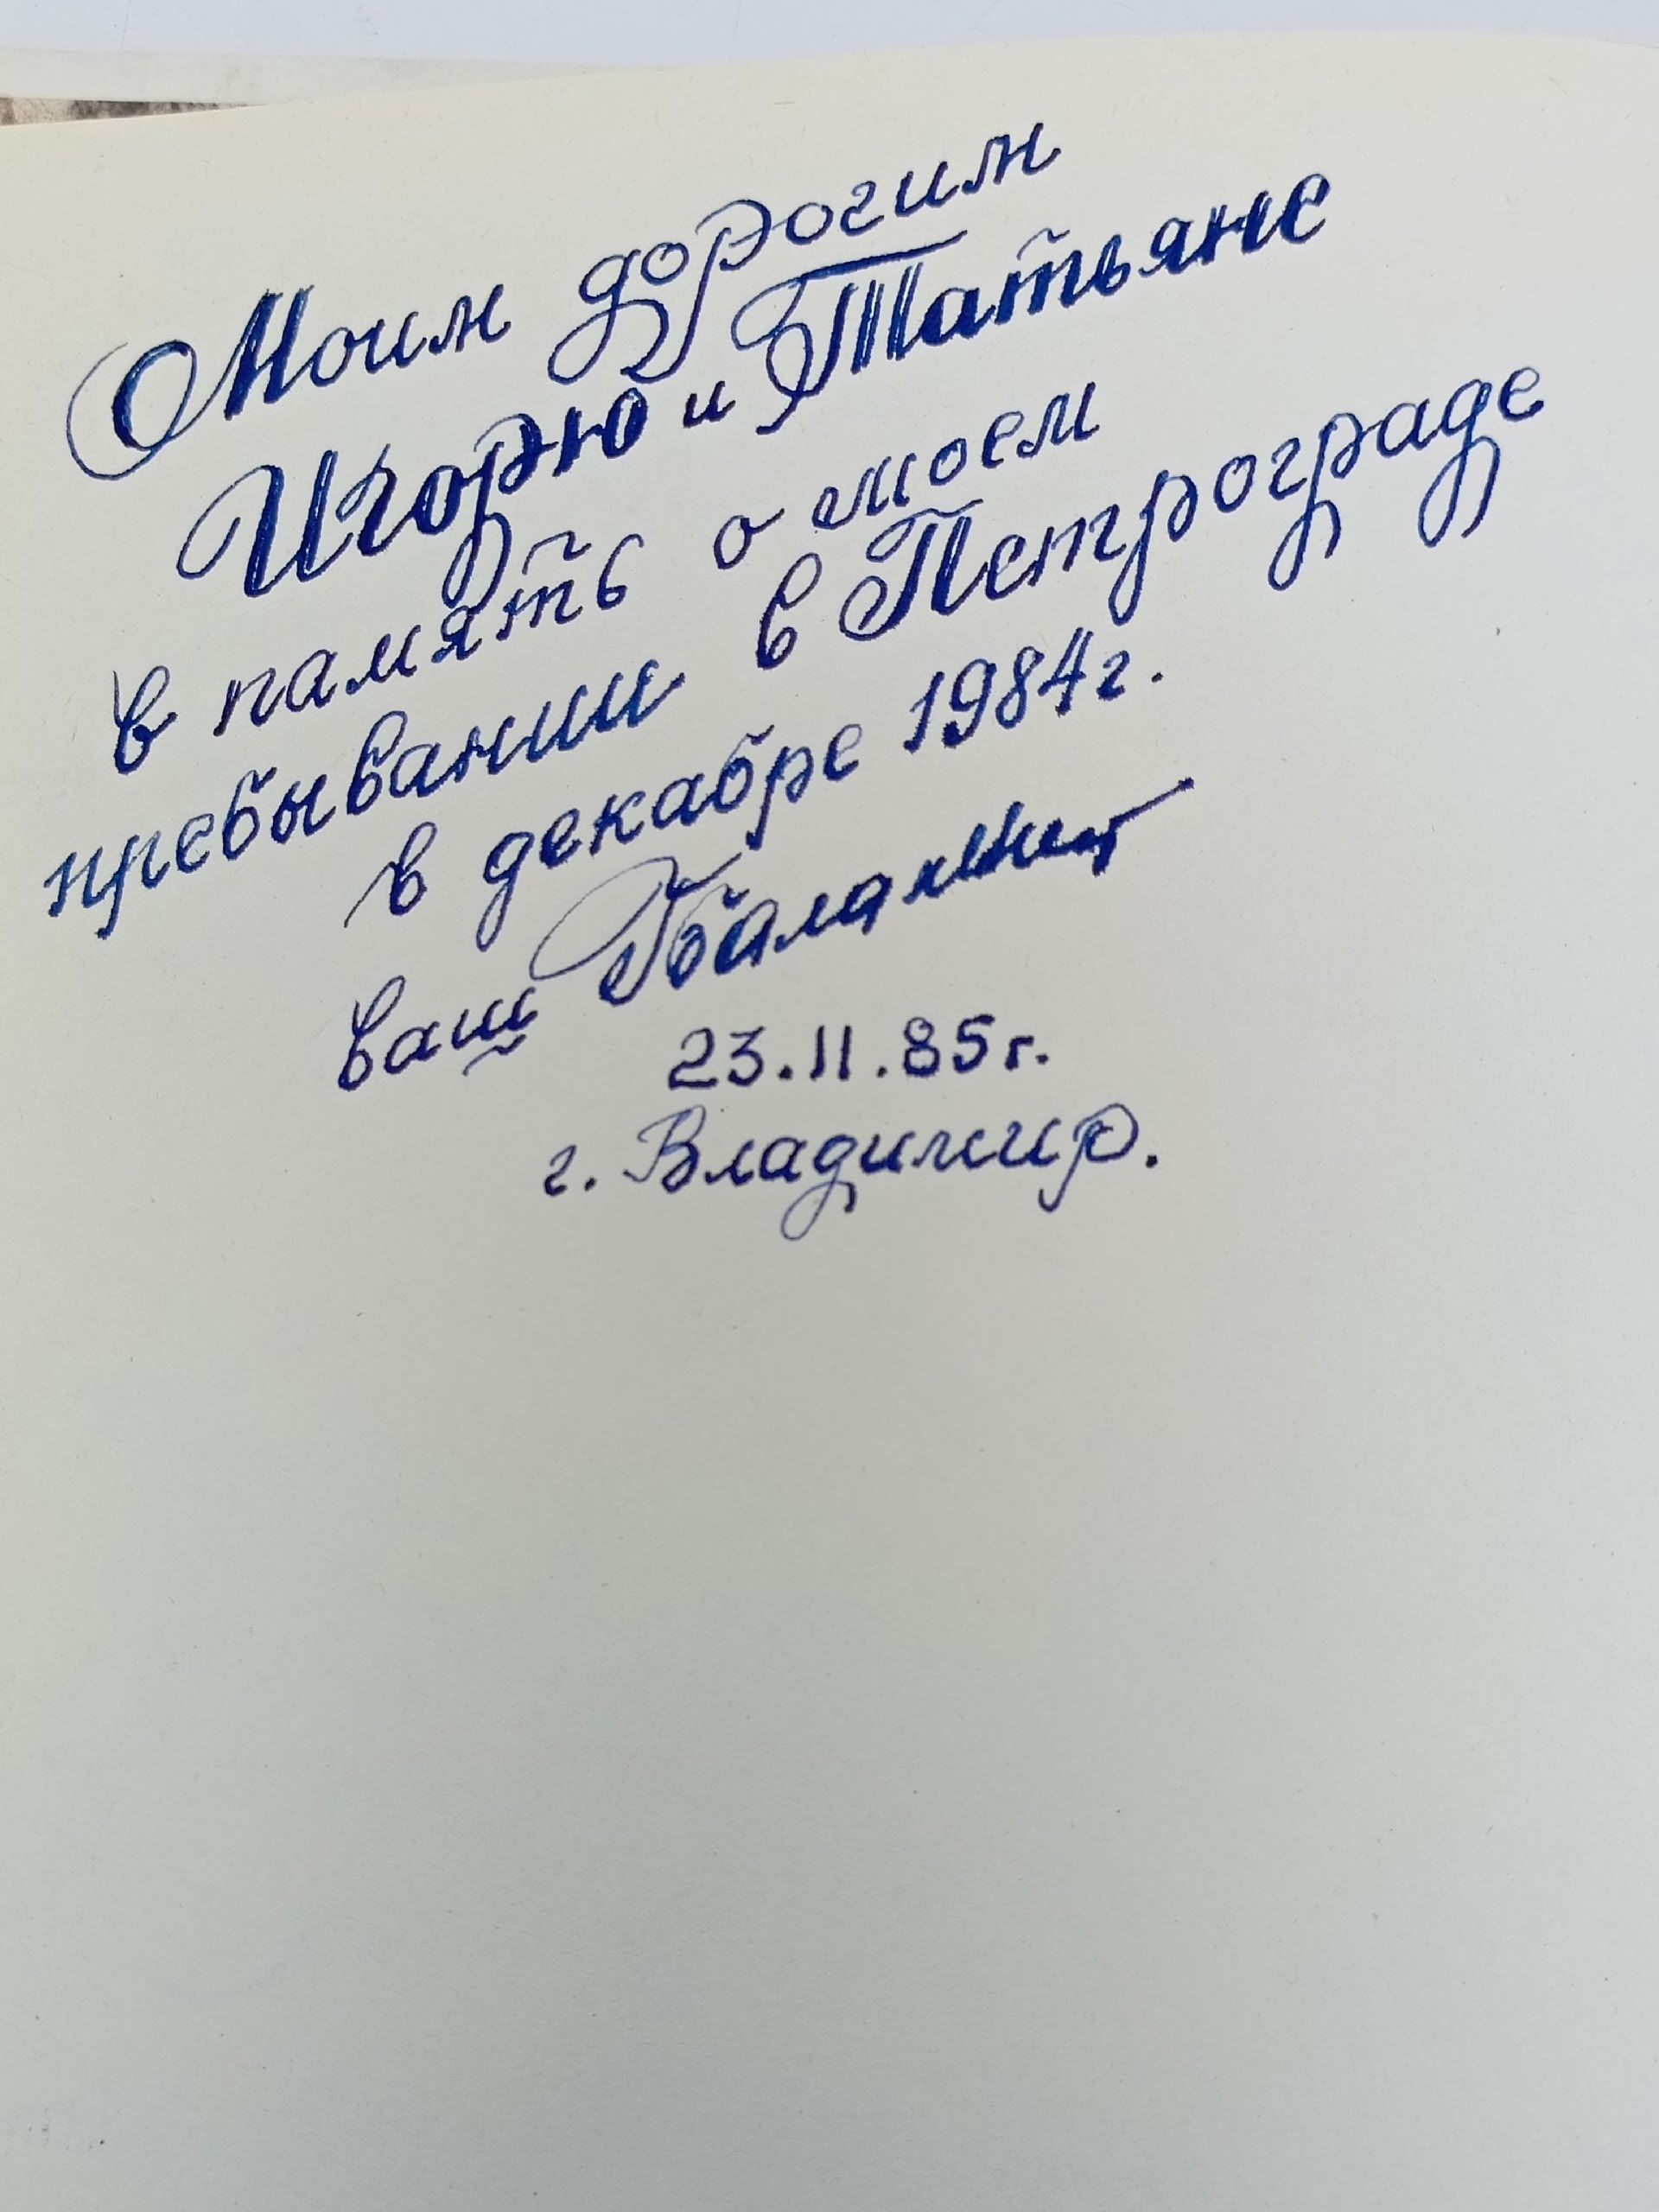 Моим дорогим
Игорю и Татьяне
в память о моем
пребывании в Петрограде
в декабре 1984г.
ваш
23.II.85г.
г. Владимир.